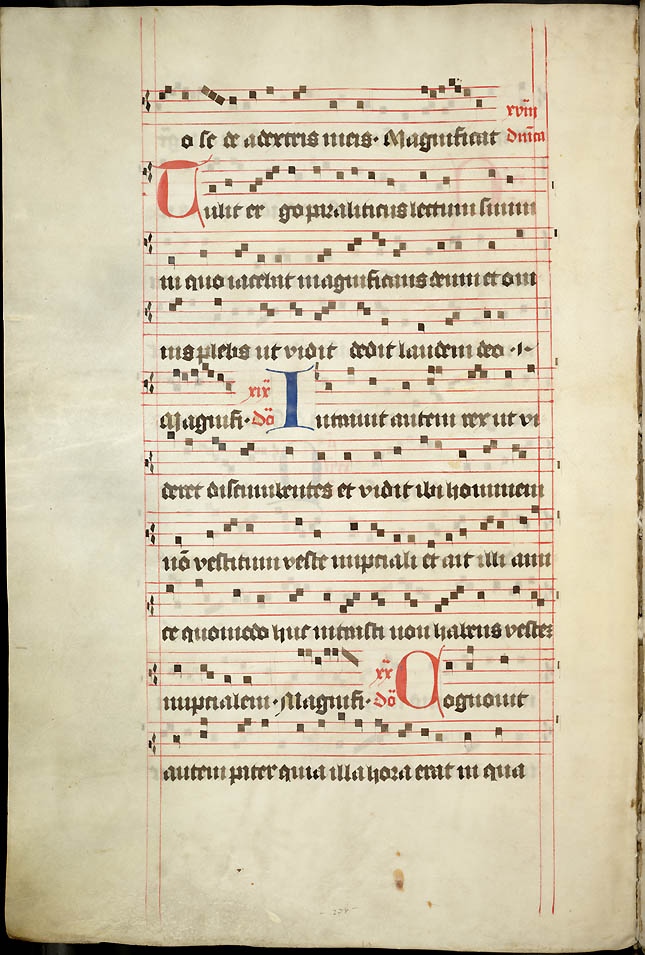 o se de adextris meis. Magnificat xviii dnica
Tulit ergo paraliticus lectum suum
in quo iacebat magnificans deum et om
nis plebs ut vidit dedit laudem deo.
Magnifi. xix do Intravit autem rex ut vi
deret discumbentes et vidit ibi hominem
nō vestitum veste nuptiali et ait illi ami
ce quomodo huc intrasti non habens vestez
nuptialem. Magnifi. xx do Cognovit
autem pater quia illa hora erat in qua